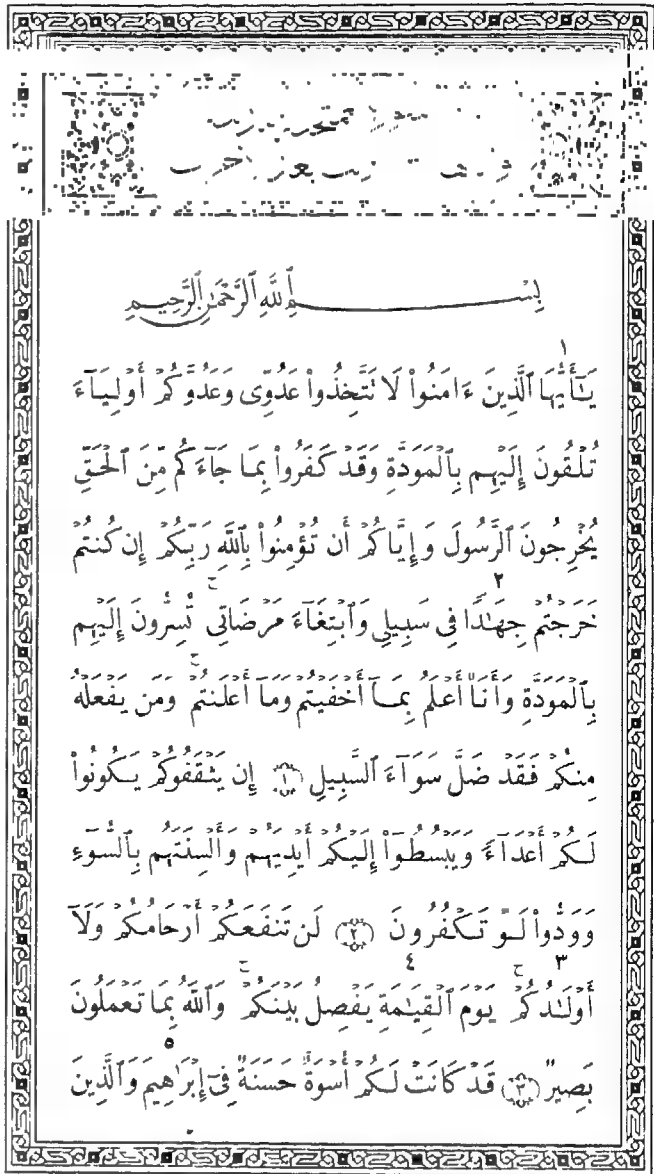 بِسْمِ ٱللَّهِ ٱلرَّحْمَٰنِ ٱلرَّحِيمِ
١
يَٰٓأَيُّهَا ٱلَّذِينَ ءَامَنُوا۟ لَا تَتَّخِذُوا۟ عَدُوِّى وَعَدُوَّكُمْ أَوْلِيَآءَ
تُلْقُونَ إِلَيْهِم بِٱلْمَوَدَّةِ وَقَدْ كَفَرُوا۟ بِمَا جَآءَكُم مِّنَ ٱلْحَقِّ
يُخْرِجُونَ ٱلرَّسُولَ وَإِيَّاكُمْ أَن تُؤْمِنُوا۟ بِٱللَّهِ رَبِّكُمْ إِن كُنتُمْ
٢
خَرَجْتُمْ جِهَٰدًا فِى سَبِيلِى وَٱبْتِغَآءَ مَرْضَاتِى ۚ تُسِرُّونَ إِلَيْهِم
بِٱلْمَوَدَّةِ وَأَنَا۠ أَعْلَمُ بِمَآ أَخْفَيْتُمْ وَمَآ أَعْلَنتُمْ ۚ وَمَن يَفْعَلْهُ
مِنكُمْ فَقَدْ ضَلَّ سَوَآءَ ٱلسَّبِيلِ ﴿١﴾ إِن يَثْقَفُوكُمْ يَكُونُوا۟
لَكُمْ أَعْدَآءً وَيَبْسُطُوٓا۟ إِلَيْكُمْ أَيْدِيَهُمْ وَأَلْسِنَتَهُم بِٱلسُّوٓءِ
وَوَدُّوا۟ لَوْ تَكْفُرُونَ ﴿٢﴾ لَن تَنفَعَكُمْ أَرْحَامُكُمْ وَلَآ
٣ ٤
أَوْلَٰدُكُمْ ۚ يَوْمَ ٱلْقِيَٰمَةِ يَفْصِلُ بَيْنَكُمْ ۚ وَٱللَّهُ بِمَا تَعْمَلُونَ
٥
بَصِيرٌ ﴿٣﴾ قَدْ كَانَتْ لَكُمْ أُسْوَةٌ حَسَنَةٌ فِىٓ إِبْرَٰهِيمَ وَٱلَّذِينَ